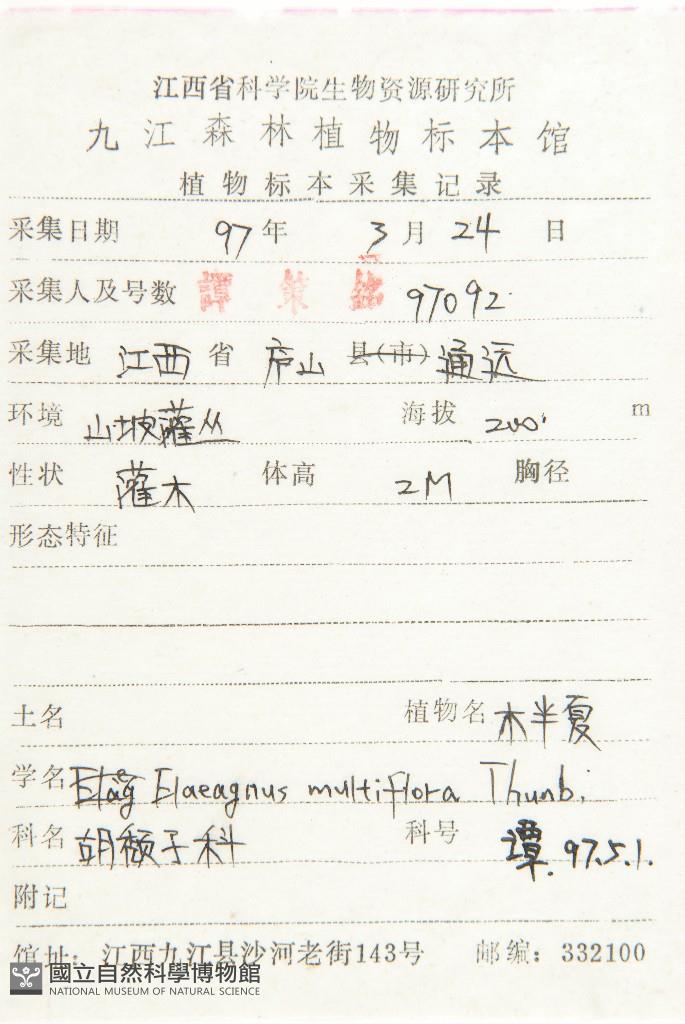 江西省科学院生物资源研究所
九江森林植物标本馆
植物标本采集记录
采集日期 97 年 3 月 24 日
采集人及号数 譚策銘 97092
采集地 江西 省 庐山 县(市) 通远
环境 山坡灌丛 海拔 200 m
性状 灌木 体高 2M 胸径
形态特征
土名 植物名 木半夏
学名 Elaeagnus multiflora Thunb.
科名 胡颓子科 科号 谭. 97.5.1.
附记
馆址: 江西九江县沙河老街143号 邮编: 332100
國立自然科學博物館
NATIONAL MUSEUM OF NATURAL SCIENCE